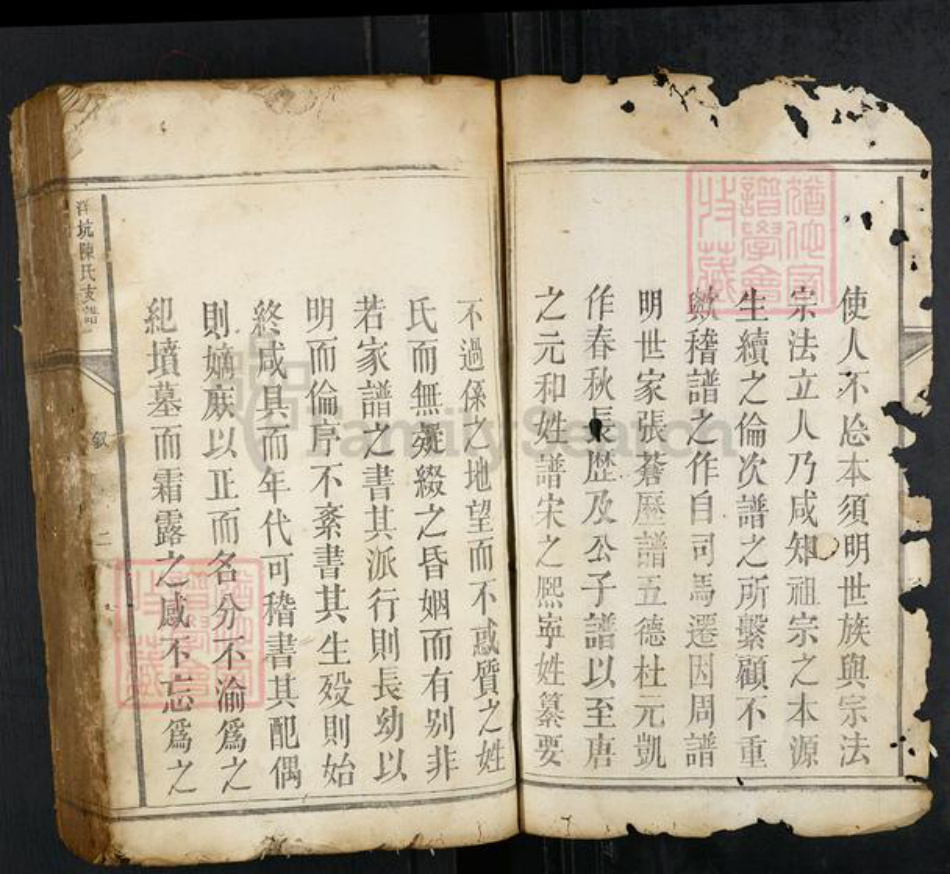 使人不忘本須明世族與宗法
宗法立人乃咸知祖宗之本源
生續之倫次譜之所繫顧不重
歟稽譜之作自司馬遷因周譜
明世家張蒼歷譜五德杜元凱
作春秋長歷及公子譜以至唐
之元和姓譜宋之熈寧姓纂要
不過係之地望而不惑質之姓
氏而無疑綴之昏姻而有别非
若家譜之書其派行則長幼以
明而倫序不紊書其生殁則始
終咸具而年代可稽書其配偶
則嫡庶以正而名分不淪爲之
紀墳墓而霜露之感不忘爲之
洋坑陳氏支譜
叙
二
猶他家
譜學會
收藏
猶他家
譜學會
收藏
FamilySearch